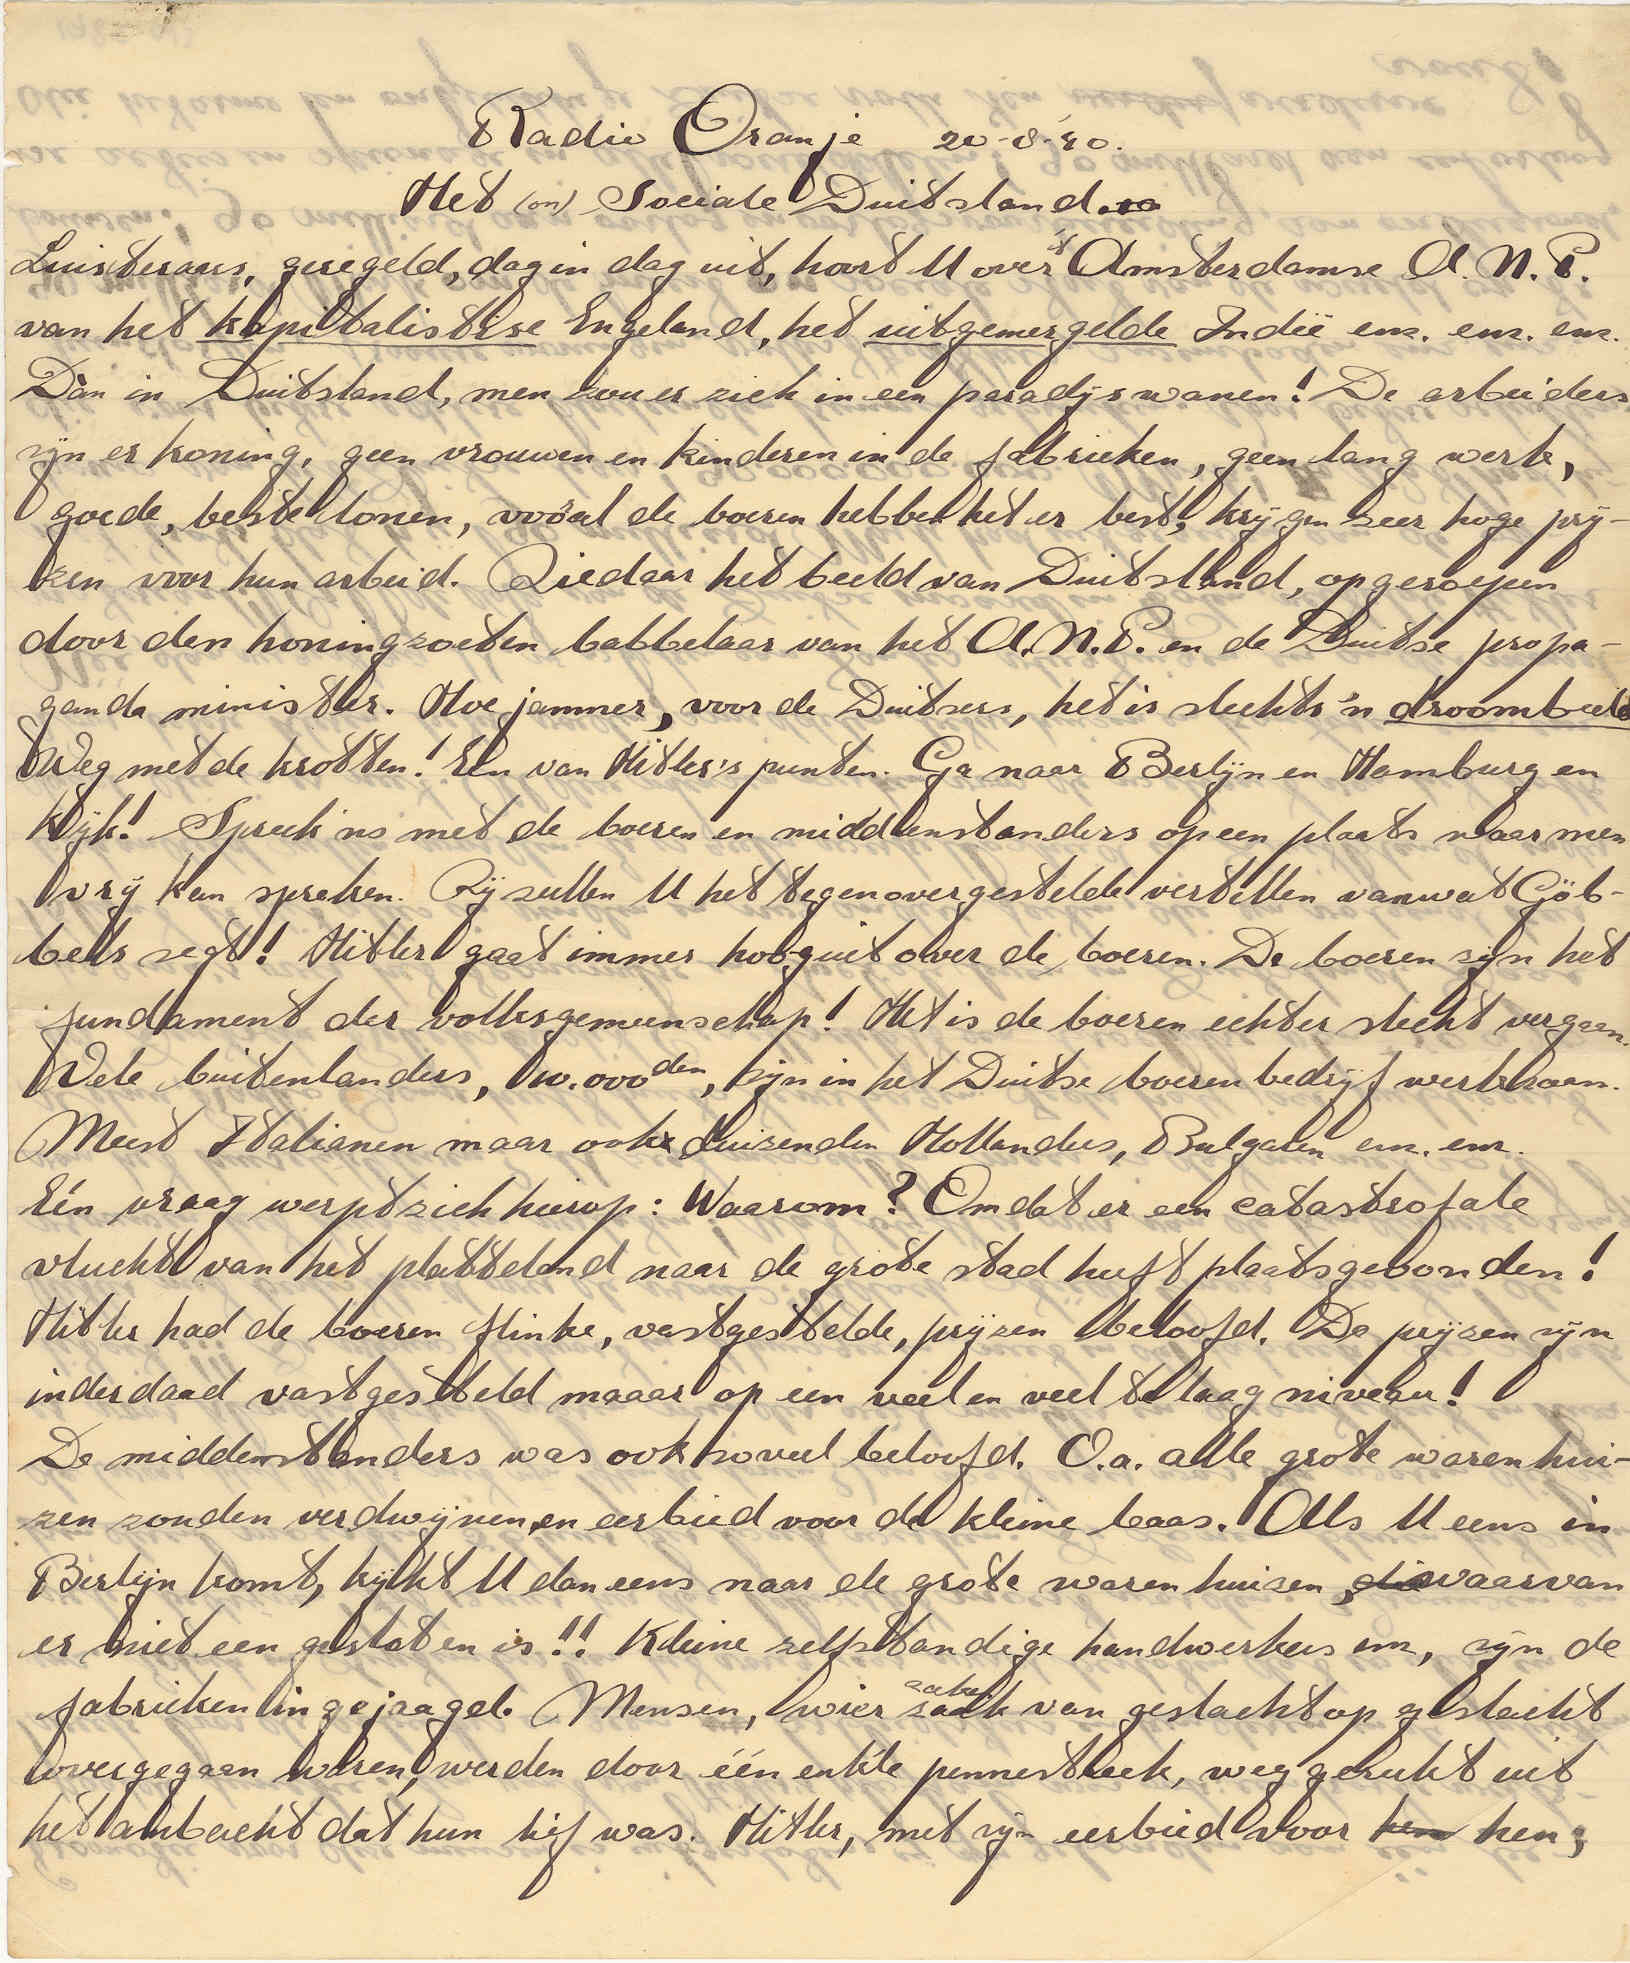 Radio Oranje 20-8-40.
Het (on) Sociale Duitsland.
Luisteraars, geregeld, dag in dag uit, hoort U over 't Amsterdamse A.N.P.
van het kapitalistise Engeland, het uitgemergelde Indië enz. enz. enz.
Dàn in Duitsland, men zou er zich in een paradijs wanen! De arbeiders
zijn er koning, geen vrouwen en kinderen in de fabrieken, geen lang werk,
goede, beste lonen, vooral de boeren hebben het er best, krijgen zeer hoge prij-
zen voor hun arbeid. Ziedaar het beeld van Duitsland, opgeroepen
door den honingzoeten babbelaar van het A.N.P. en de Duitse propa-
ganda minister. Hoe jammer, voor de Duitsers, het is slechts 'n droombeeld
Weg met de krotten! Een van Hitler's punten. Ga naar Berlijn en Hamburg en
kijk! Spreek ns met de boeren en middenstanders op een plaats waar men
vrij kan spreken. Zij zullen U het tegenovergestelde vertellen van wat Göb-
bels zegt! Hitler gaat immer hoog uit over de boeren. De boeren zijn het
fundament der volksgemeenschap! Het is de boeren echter slecht vergaan.
Vele buitenlanders, 10.000den, zijn in het Duitse boerenbedrijf werkzaam.
Meest Italianen maar ook duizenden Hollanders, Bulgaren enz. enz.
Eén vraag werpt zich hierop: Waarom? Omdat er een catastrofale
vlucht van het platteland naar de grote stad heeft plaatsgevonden!
Hitler had de boeren flinke, vastgestelde, prijzen beloofd. De prijzen zijn
inderdaad vastgesteld maaar op een veel en veel te laag niveau!
De middenstanders was ook zoveel beloofd. O.a. alle grote warenhui-
zen zouden verdwijnen, en eerbied voor de kleine baas. Als U eens in
Berlijn komt, kijkt U dan eens naar de grote warenhuizen, die waarvan
er niet een gesloten is!! Kleine zelfstandige handwerkers enz, zijn de
fabrieken ingejaagd. Mensen, wier zaak zaken van geslacht op geslacht
overgegaan waren, werden door één enkle pennestreek, weggerukt uit
het ambacht dat hun lief was. Hitler, met zijn eerbied voor hen hen,